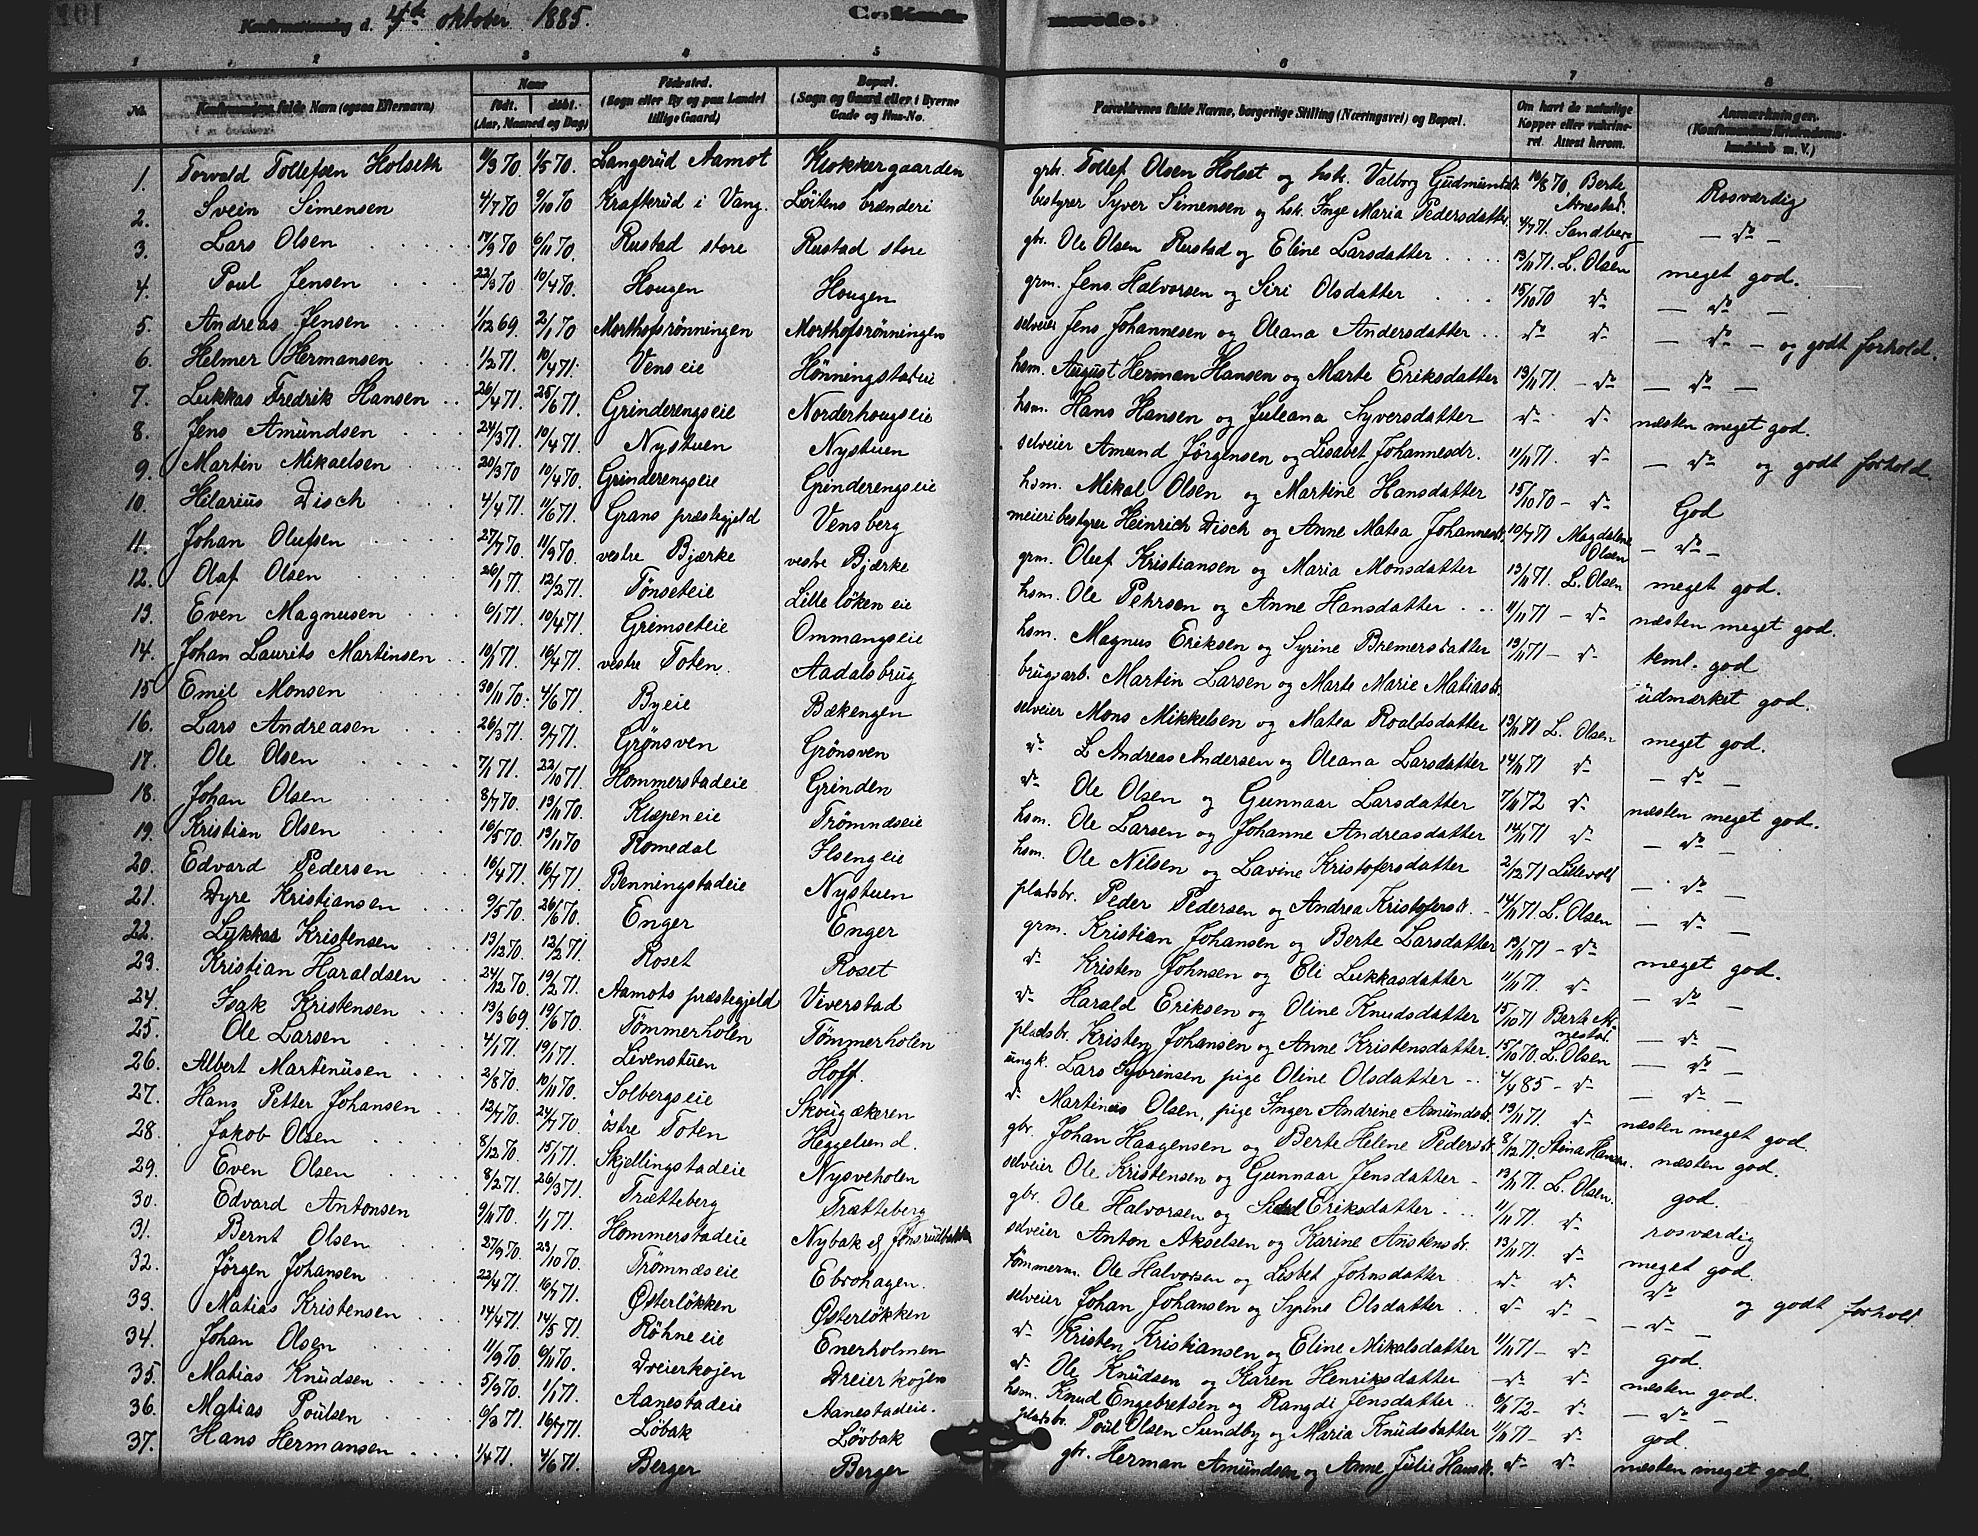 Konfirmantsning d. 4de oktober 1885. Konfirmerede.
1 2 3 4 5 6 7 8
No. Konfirmandens fulde Navn (ogsaa Efternavn) Naar født. døbt. (Aar, Maaned og Dag) Fødested. (Sogn eller By og paa Landet tillige Gaard) Bopæl. (Sogn og Gaard eller i Byerne Gade og Hus-No. Forældrenes fulde Navne, borgerlige Stilling (Næringsvei) og Bopæl. Om havt de naturlige Kopper eller vakcineret. Attest herom. Anmærkninger. (Konfirmandens Kristendomskundskab m. V.)
1. Torvald Tollefsen Holseth 11/3 70 1/5 70. Langerud Aamot Klokkergaarden grbr. Tollef Olsen Holset og hsk. Valborg Gudmundsdr. 10/8 70, Berte Arnestad. Rosværdig
2. Svein Simensen 4/7 70 9/10 70 Krafterud i Vang. Löitens brænderi bestyrer Syver Simensen og hsk. Inge Maria Pedersdatter 4/7 71. Sandberg — do —
3. Lars Olsen 14/9 70 6/11 70. Rustad store Rustad store gbr. Ole Olsen Rustad og Eline Larsdatter 13/11 71. L. Olsen meget god.
4. Poul Jensen 22/3 70 10/4 70. Hougen Hougen grm. Jens Halvorsen og Siri Olsdatter 15/10 70 do — do —
5. Andreas Jensen 1/12 69. 2/1 70 Morthofsrønningen Morthofsrønningen selveier Jens Johannesen og Oleana Andersdatter do do — do — og godt forhold.
6. Helmer Hermansen 1/2 71. 10/4 71. Vens eie Hönningstadeie hsm. August Herman Hansen og Marte Eriksdatter 13/11 71. — do — do —
7. Lukkas Fredrik Hansen 26/4 71. 25/6 71. Grinderengseie Norderhougseie hsm. Hans Hansen og Juleana Syversdatter do do næsten meget god
8. Jens Amundsen 24/3 71. 10/4 71. Nystuen Nystuen selveier Amund Jörgensen og Lisabet Johannesdr. 11/11 71. do — do og godt forhold.
9. Martin Mikaelsen 20/3 70 10/4 70. Grinderengseie Grinderengseie hsm. Mikal Olsen og Martine Hansdatter 15/10 70 — do God
10. Hilarius Disch 4/4 71 11/6 71. Grans præstegjeld Vensberg meieribestyrer Heinrich Disch og Anne Matea Johannesdr. 10/7 71 Magdalene Olsen — do —
11. Johan Olufsen 27/7 70. 11/9 70. vestre Bjærke vestre Bjærke grm. Oluf Kristiansen og Maria Monsdatter 13/11 71. L. Olsen meget god.
12. Olaf Olsen 26/1 71. 12/2 71. Tönseteie Lille löken eie hsm. Ole Pehrsen og Anne Hansdatter 11/11 71 — do næsten meget god.
13. Even Magnusen 6/1 71. 10/4 71. Grimseteie Ommangseie hsm. Magnus Eriksen og Syrine Bremersdatter 13/11 71 — do teml. god
14. Johan Laurits Martinsen 10/1 71. 16/4 71. vestre Toten. Aadalsbrug brugsarb. Martin Larsen og Marte Marie Matiasdr. udmærket god.
15 Emil Monsen 30/11 70. 4/6 71. Byeie Bækengen selveier Mons Mikkelsen og Matea Roaldsdatter 13/11 81 L. Olsen meget god.
16. Lars Andreasen 26/3 71. 9/7 71. Grönsven Grönsven do L Andreas Andersen og Oleana Larsdatter 14/11 71 do — do —
17. Ole Olsen 7/1 71. 22/10 71. Hommerstadeie Grinden do Ole Olsen og Gunnaar Larsdatter 7/11 72 do næsten meget god.
18. Johan Olsen 8/7 70. 13/11 70. Klæpen eie Trömnæseie hsm. Ole Larsen og Johanne Andreasdatter 14/11 71 do — do —
19. Kristian Olsen 16/5 70. 13/11 70 Romedal Ilseng eie hsm. Ole Nilsen og Lavine Kristofersdatter 2/12 71 Lillevold — do —
20. Edvard Pedersen 16/4 71. 16/7 71. Benningstadeie Nystuen pladsbr. Peder Pedersen og Andrea Kristofersdr. 14/11 71. L. Olsen — do —
21. Dyre Kristiansen 9/5 70. 26/6 70. Enger Enger grm. Kristian Johansen og Berte Larsdatter 13/11 71 — do meget god.
22. Lykkas Kristensen 13/12 70. 12/2 71. Roset Roset do Kristen Johnsen og Eli Lukkasdatter 11/11 71. do — do —
23. Kristian Haraldsen 24/12 70. 19/2 71. Aamots præstegjeld Viverstad do Harald Eriksen og Oline Knudsdatter 15/10 71 Berte Arnestad. — do —
24. Isak Kristensen 13/3 69. 19/6 70. Tömmerholen Tömmerholen pladsbr. Kristen Johansen og Anne Kristensdatter. 15/10 70. L. Olsen — do —
25. Ole Larsen 4/1 71. 19/1 71. Livenstuen Hoff. ungk. Lars Syvrensen pige Oline Olsdatter 4/4 85 — do — do —
26. Albert Martinusen 2/8 70. 10/11 70. Solbergseie Skougækeren do Martinus Olsen, pige Inger Andrine Amundsdr. 13/11 71. do næsten meget god.
27. Hans Petter Johansen 12/7 70. 24/7 70. östre Toten Heggelund. gbr. Johan Haagensen og Berte Helene Pedersdr. 8/12 71. Stina Hansen. næsten god.
28. Jakob Olsen 8/12 70. 15/1 71. Skjellingstadeie Nysveholen selveier Ole Kristensen og Gunnaar Jensdatter 13/11 71. L. Olsen. god.
29. Even Olsen 8/2 71. 26/3 71. Trætteberg Trætteberg gbr. Ole Halvorsen og Sidsel Eriksdatter 11/11 71. do rosværdig
30. Edvard Antonsen 9/11 70. 1/1 71. Hommerstadeie Nybak ell. Jönsrudbakken selveier Anton Akselsen og Karine Anstensdr. 13/11 71. do meget god.
31. Bernt Olsen 27/9 70. 23/10 70. Trömnæseie Ebrohagen. tömmerm. Ole Halvorsen og Lisbet Johnsdatter do do do og godt forhold
32. Jörgen Johansen 22/4 71. 16/7 71. Østerløkken Østerløkken selveier Johan Johansen og Syrine Olsdatter do do — do —
33. Matias Kristensen 14/4 71. 14/5 71. Røhne eie Enerholmen do Kristen Kristiansen og Eline Mikalsdatter 11/11 71 — do god.
34. Johan Olsen 11/9 70. 6/11 70. Dreierkojen Dreierkojen do Ole Knudsen og Karen Henriksdatter do do næsten god.
35. Matias Knudsen 5/9 70. 1/1 71. Aanestadeie Aanestadeie. hsm. Knud Engebretsen og Rangdi Jensdatter 6/11 72 — do — do —
36. Matias Poulsen 9/3 71. 16/7 71. Löbak Lövbak pladsbr. Poul Olsen Sundby og Maria Knudsdatter 11/11 71 — do god.
37. Hans Hermansen 1/4 71. 4/6 71. Berger Berger gbr. Herman Amundsen og Anne Julie Hansdr. do do næsten meget god.